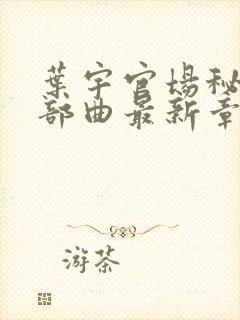 葉宇官場秘
部曲最新章
游茶